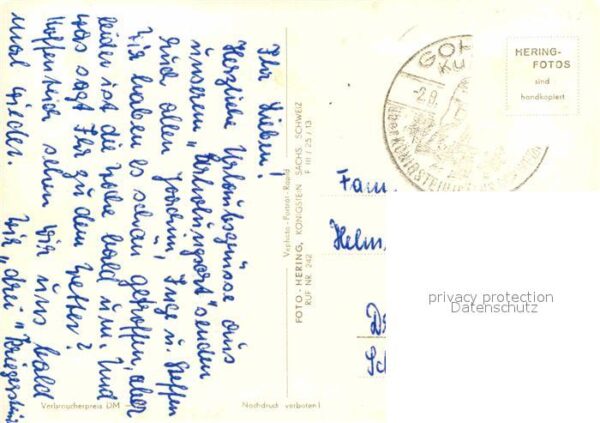 Ihr Lieben!
Herzliche Urlaubsgrüsse aus
unserem „Erholungsort" senden
Euch allen Joachim, Inge u. Steffen
Wir haben es schön getroffen, aber
leider ist die Woche bald um. Und
was sagt Ihr zu dem Wetter?
Hoffentlich sehen wir uns bald
mal wieder. Wir „drei"
Verbraucherpreis DM
Nachdruck verboten!
Vephota-Format-Rapid
FOTO-HERING, KÖNIGSTEIN SÄCHS. SCHWEIZ
RUF NR. 242
F III / 25 / 13
GOH
KU
-2.9.
über KÖNIGSTEIN
HERING-
FOTOS
sind
handkopiert
Fam
Helm
D
Sch
privacy protection
Datenschutz